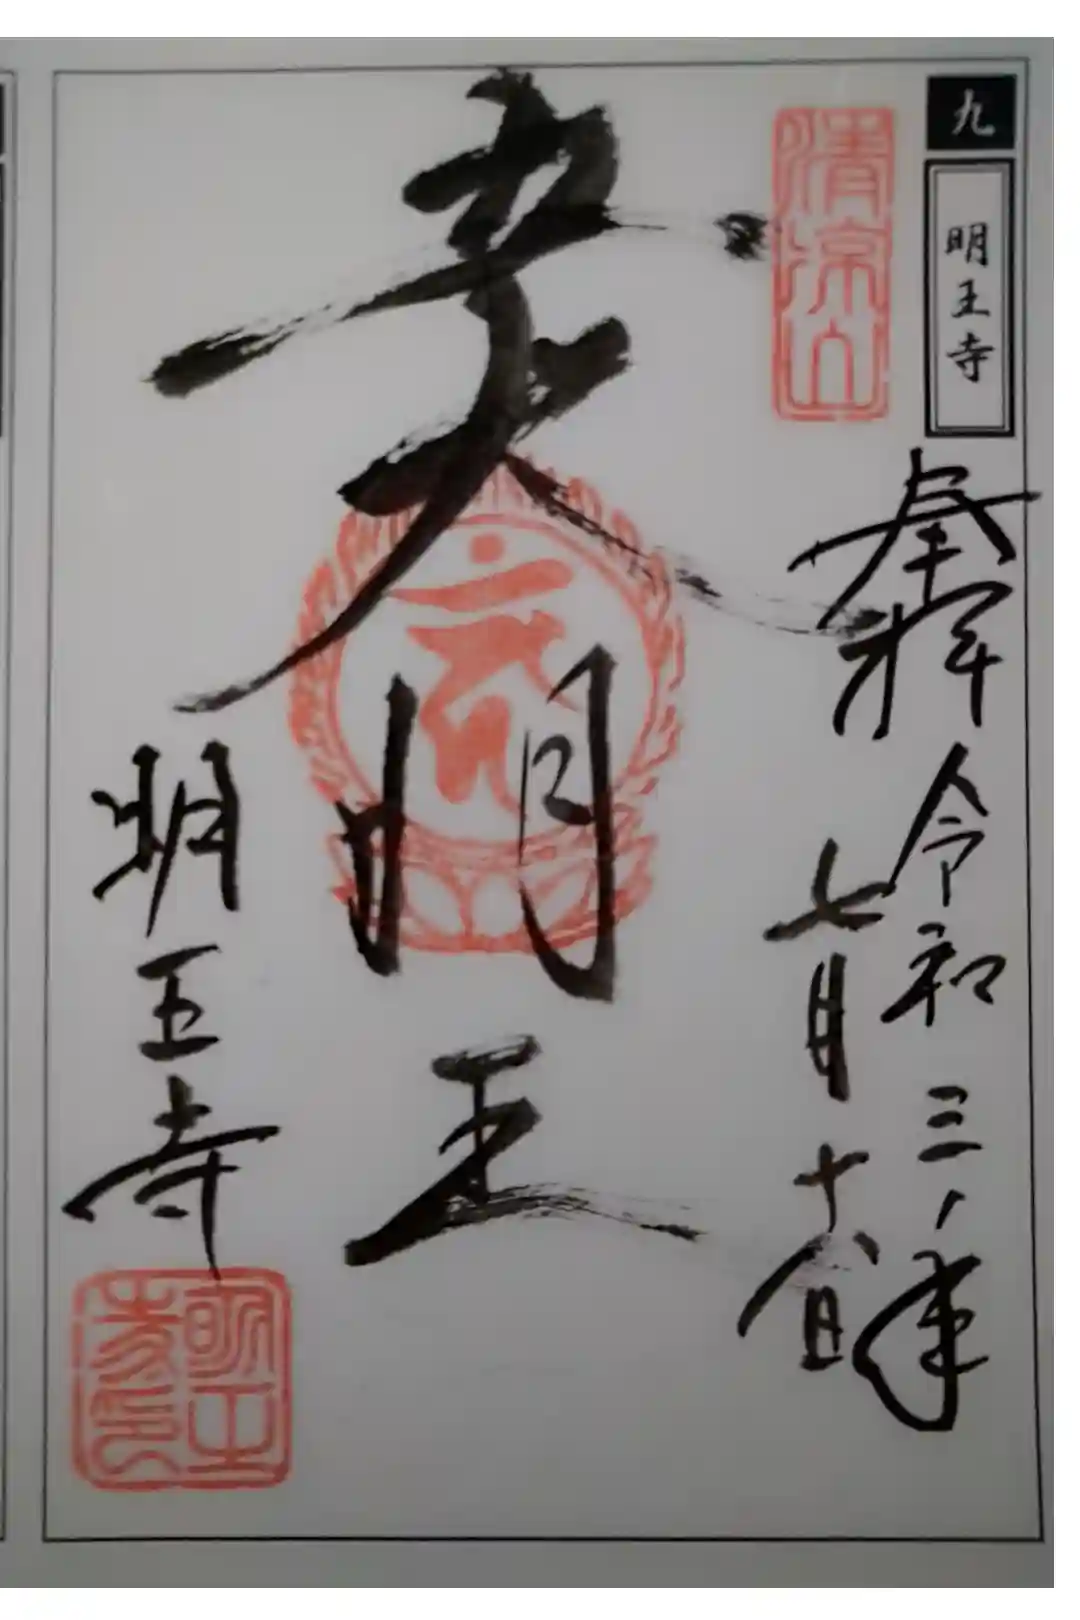 九
明王寺
清涼山
奉拝
令和三年
七月十八日
五大明王
明王寺
明王寺印